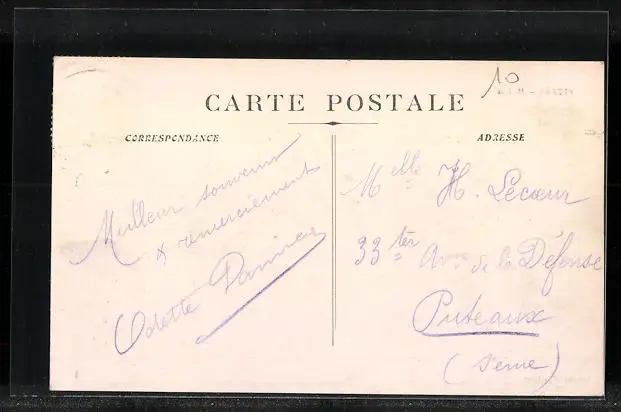 10
CARTE POSTALE
CORRESPONDANCE
ADRESSE
Meilleur souvenir
& remerciement
Odette
Melle H. Lecœur
33ter Ave de la Défense
Puteaux
(Seine)